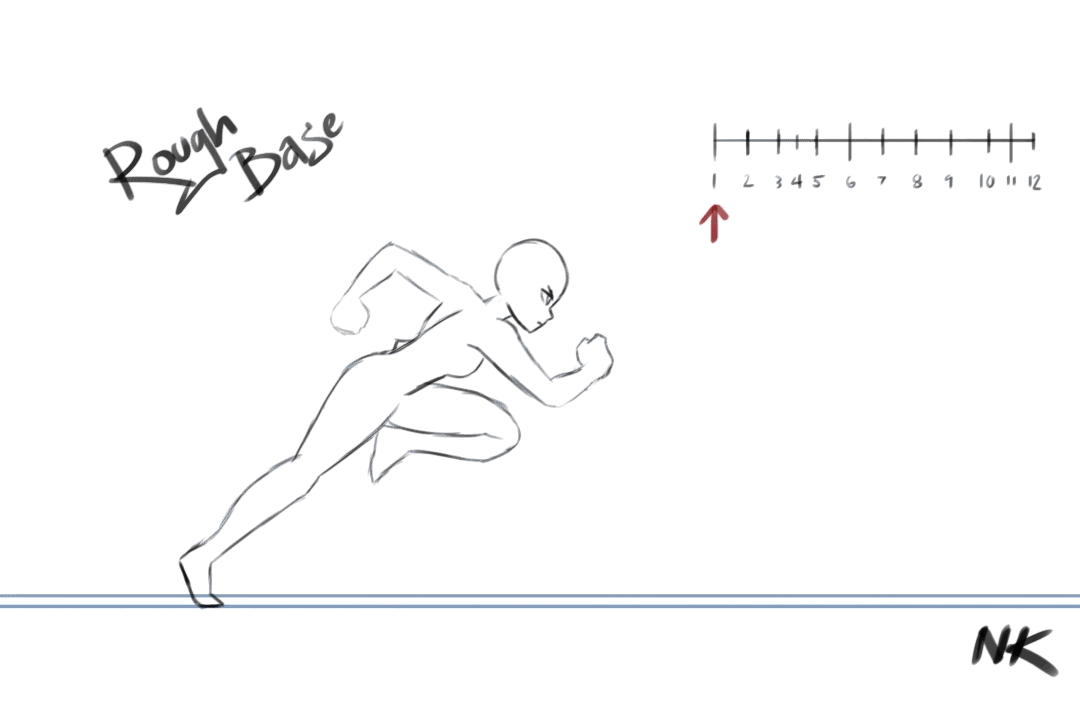 Rough
Base
1 2 3 4 5 6 7 8 9 10 11 12
NK